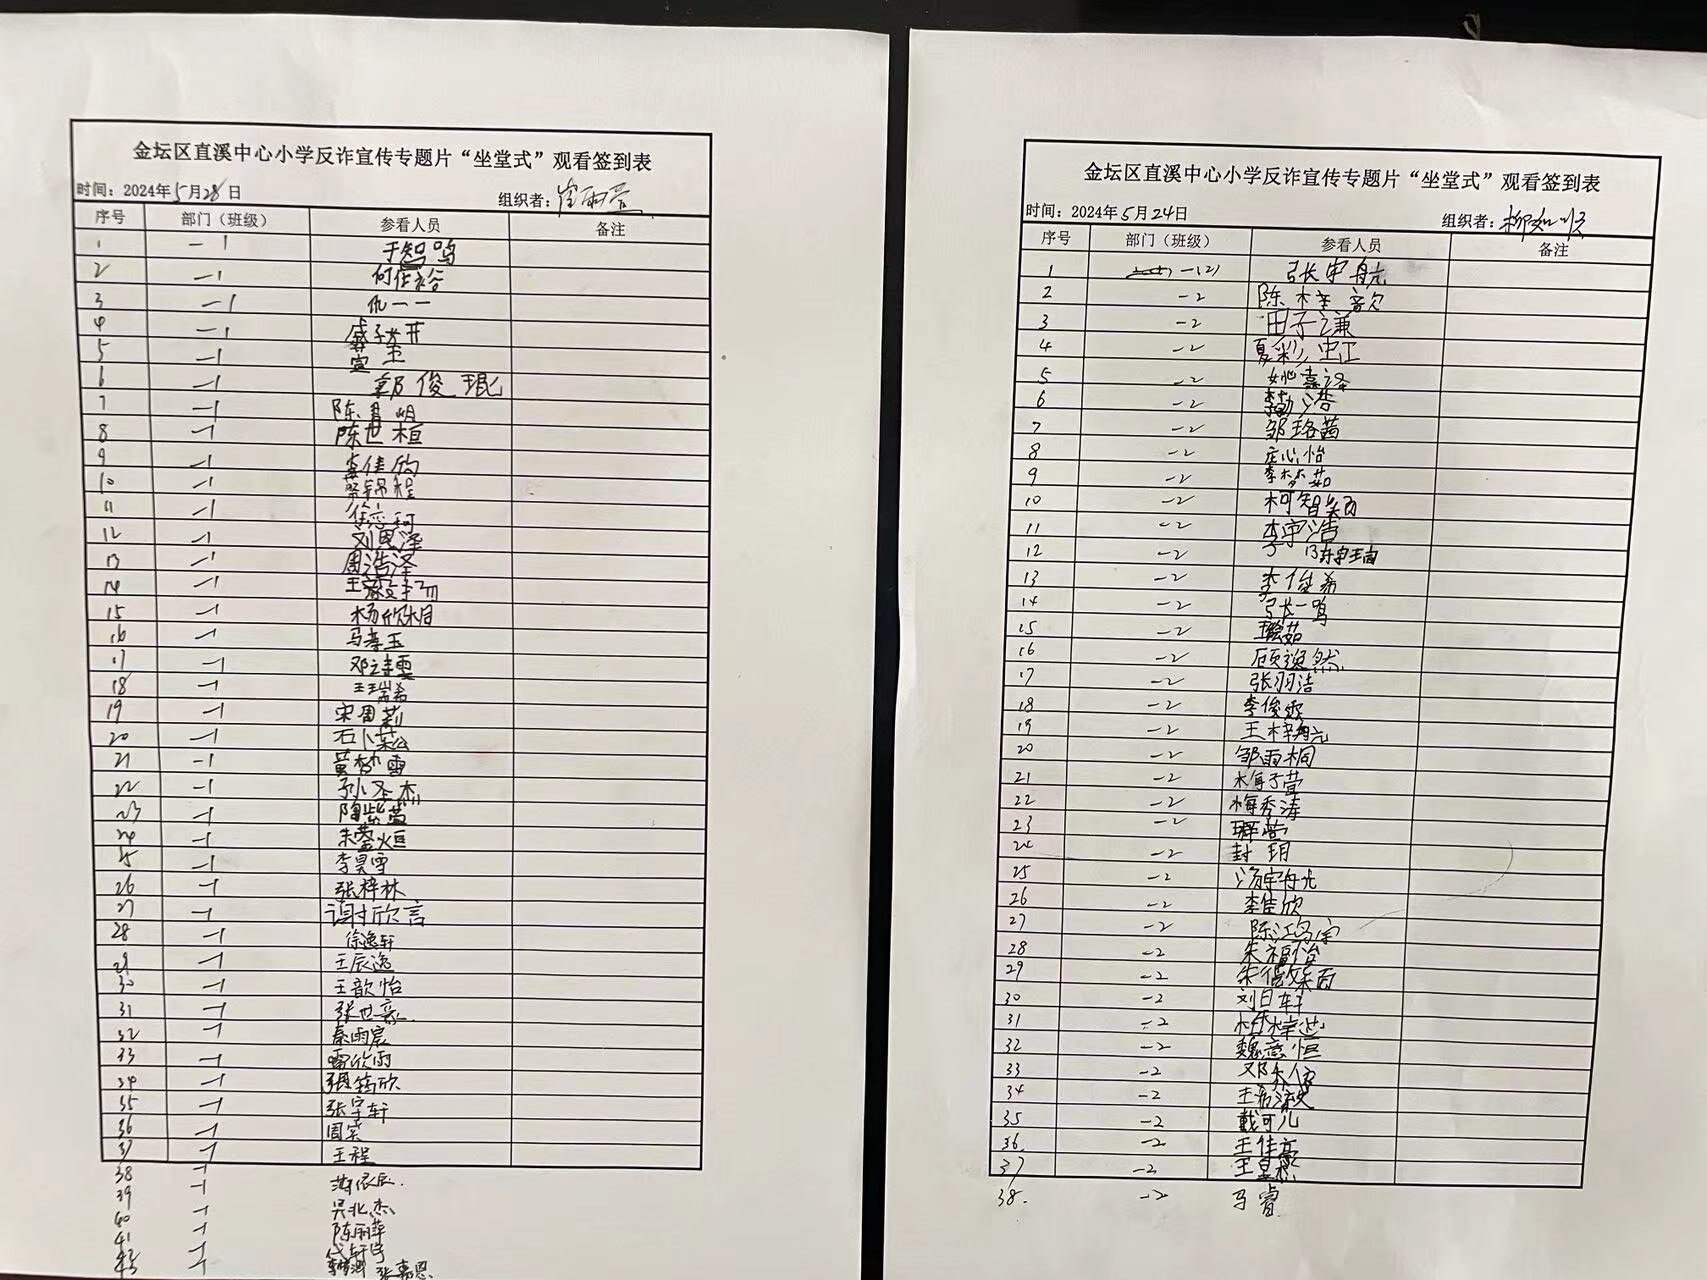 金坛区直溪中心小学反诈宣传专题片“坐堂式”观看签到表
时间：2024年5月28日 组织者：崔雨萱
序号 部门（班级） 参看人员 备注
1 一1 于智鸣
2 一1 何佳谷
3 一1 仇一一
4 一1 盛子芥
5 一1 萱
6 一1 郭俊琨
7 一1 陈君明
8 一1 陈世桓
9 一1 李佳欣
10 一1 蔡锦程
11 一1 徐恋珂
12 一1 刘恩泽
13 一1 周浩泽
14 一1 王
15 一1 杨欣桐
16 一1 马孝玉
17 一1 邓诗雯
18 一1 王瑞希
19 一1 宋周莉
20 一1 石卜菘
21 一1 黄梦雪
22 一1 孙圣杰
23 一1 陶紫萱
24 一1 朱蓥烜
25 一1 李昊雪
26 一1 张梓林
27 一1 谢欣言
28 一1 徐逸轩
29 一1 王辰逸
30 一1 王歆怡
31 一1 张世豪
32 一1 秦雨宸
33 一1 雷欣雨
34 一1 张筠欣
35 一1 张宇轩
36 一1 周奕
37 一1 王程
38 一1 薄依辰
39 一1 吴北杰
40 一1 陈丽萍
41 一1 代轩宇
43 一1 张嘉恩
金坛区直溪中心小学反诈宣传专题片“坐堂式”观看签到表
时间：2024年5月24日 组织者：柳如顺
序号 部门（班级） 参看人员 备注
1 一(2) 张宇航
2 一2 陈梓歆
3 一2 田子谦
4 一2 夏彩虹
5 一2 姚嘉泽
6 一2 李勋浩
7 一2 邹珞茜
8 一2 庄心怡
9 一2 李梦茹
10 一2 柯智
11 一2 李宇浩
12 一2 陈宇
13 一2 李俊希
14 一2 张一鸣
15 一2 王懿茹
16 一2 顾逸然
17 一2 张羽洁
18 一2 李俊
19 一2 王梓翰
20 一2 邹雨桐
21 一2 梅子萱
22 一2 梅秀涛
23 一2
24 一2 封玥
25 一2 汤宇航
26 一2 李佳欣
27 一2 陈江鸿宇
28 一2 朱福怡
29 一2 朱
30 一2 刘日轩
31 一2 杜梓逸
32 一2 魏意恒
33 一2 邓
34 一2 王希
35 一2 戴可儿
36. 一2 王佳豪
37 一2 王昱杰
38. 一2 马睿